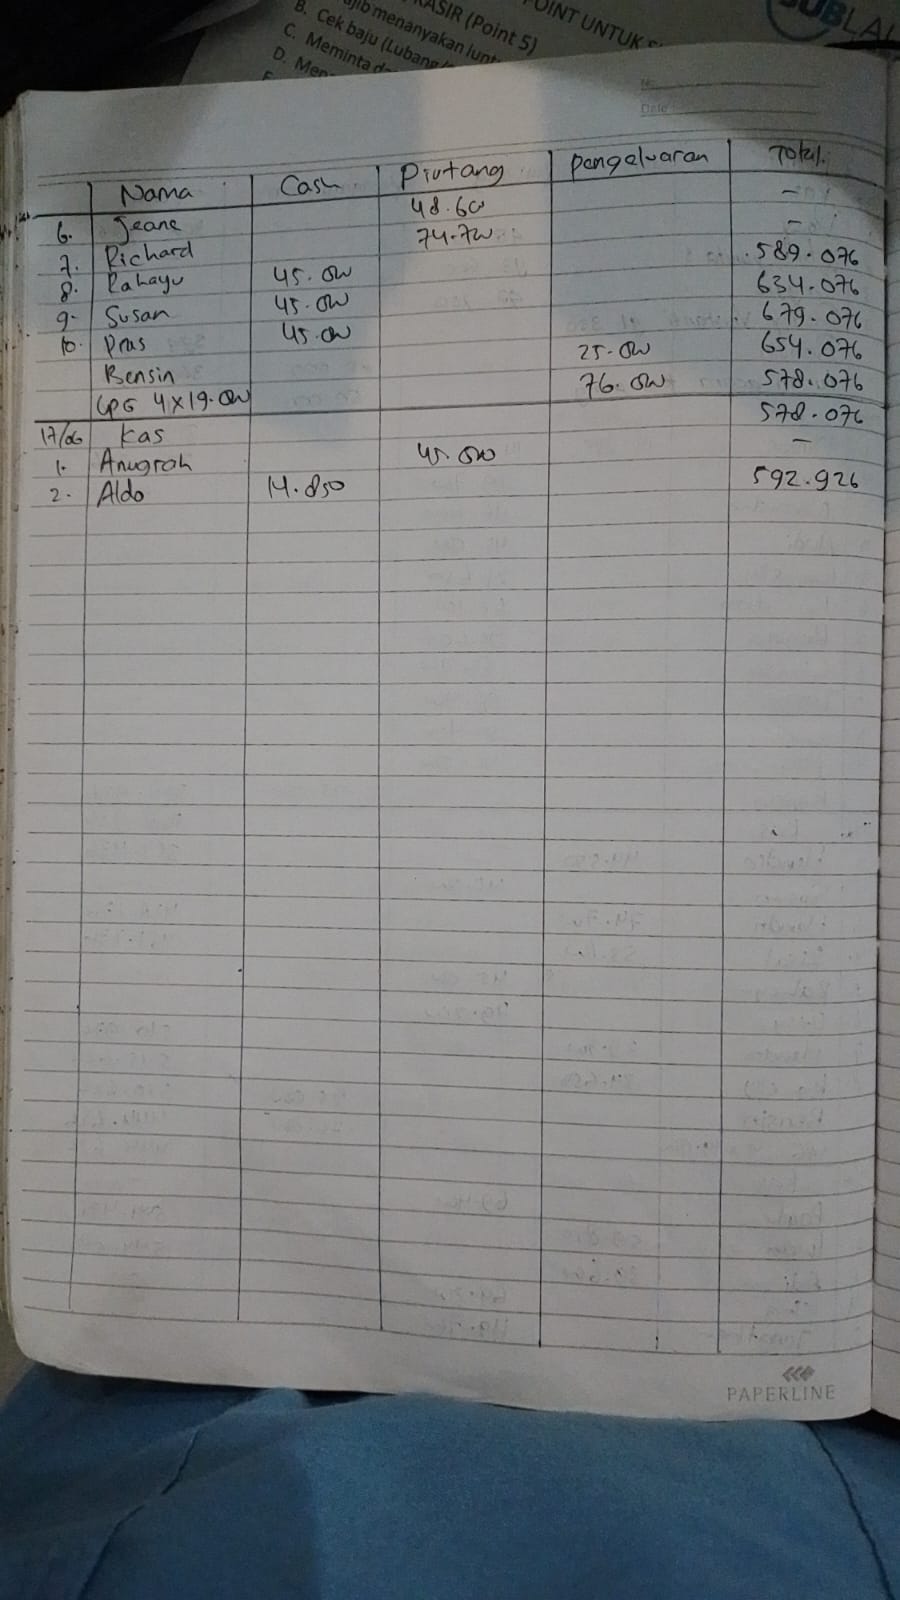 OINT UNTUK S
SUBLA
KASIR (Point 5)
jib menanyakan lunt
B. Cek baju (Lubang
C. Meminta da
D. Men
No
Date
Nama Cash Piutang Pengeluaran Total
6. Jeane 48.600 -
7. Richard 74.700 -
8. Rahayu 45.000 589.076
9. Susan 45.000 634.076
10. Pras 45.000 679.076
Bensin 25.000 654.076
LPG 4x19.000 76.000 578.076
17/06 Kas 578.076
1. Anugrah 45.000 -
2. Aldo 14.850 592.926
PAPERLINE